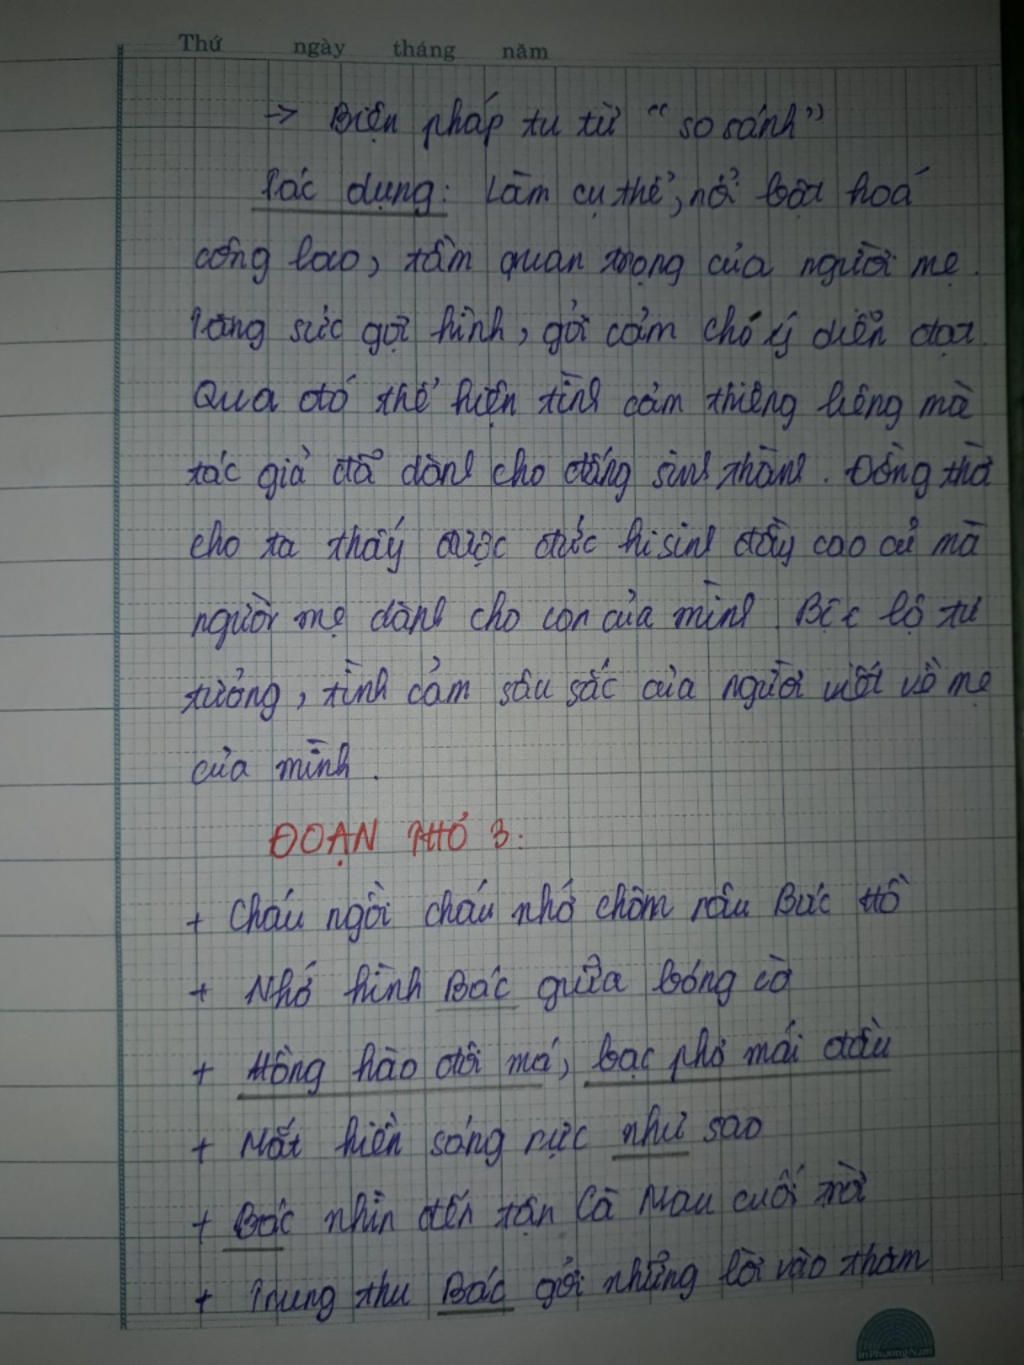 Thứ ngày tháng năm
→ Biện pháp tu từ "so sánh"
Tác dụng: Làm cụ thể, nổi bật hoá
công lao, tầm quan trọng của người mẹ.
Tăng sức gợi hình, gởi cảm cho ý diễn đạt.
Qua đó thể hiện tình cảm thiêng liêng mà
tác giả đã dành cho đấng sinh thành. Đồng thời
cho ta thấy được đức hi sinh đầy cao cả mà
người mẹ dành cho con của mình. Bộc lộ tư
tưởng, tình cảm sâu sắc của người viết về mẹ
của mình.
ĐOẠN THƠ 3:
+ Cháu ngồi cháu nhớ chòm râu Bác Hồ
+ Nhớ hình Bác giữa bóng cờ
+ Hồng hào đôi má, bạc phơ mái đầu
+ Mắt hiền sáng rực như sao
+ Bác nhìn đến tận Cà Mau cuối trời
+ Trung thu Bác gởi những lời vào thăm
in Phương Nam